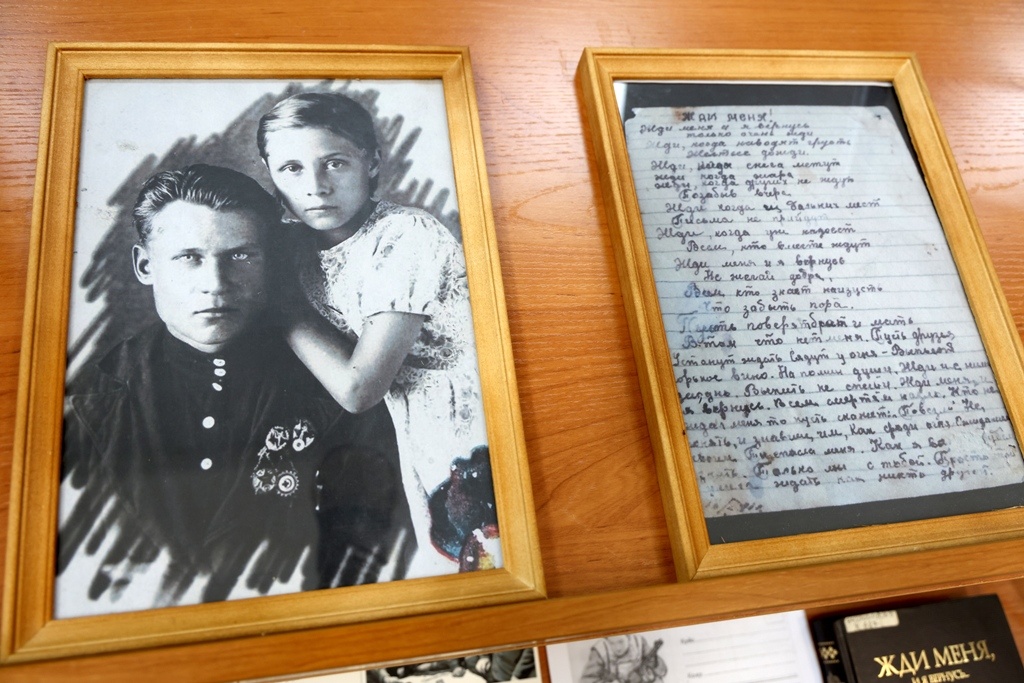 ЖДИ МЕНЯ!
Жди меня и я вернусь
только очень жди
Жди, когда наводят грусть
Желтые дожди.
Жди, когда снега метут
жди когда жара
жди, когда других не ждут
Позабыв вчера
Жди когда из дальних мест
Письма не придут
Жди, когда уж надоест
Всем, кто вместе ждут
Жди меня и я вернусь
Не желай добра,
Всем, кто знает наизусть
Что забыть пора.
Пусть поверят брат и мать
В том что нет меня. Пусть друзья
Устанут ждать сядут у огня. Выпьют
горькое вино. На помин души. Жди и с ними
Выпить не спеши. Жди меня, и
я вернусь. Всем смертям назло. Кто не
ждал меня, то пусть скажет: Повезло. Не
понять, и ждавшим, им, Как среди огня. Ожиданием
своим Ты спасла меня. Как я
Только мы с тобой. Просто ты
ждать как никто другой.
ЖДИ МЕНЯ,
И Я ВЕРНУСЬ